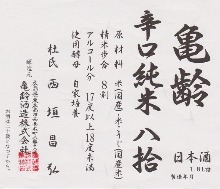 亀齢
辛口純米 八拾
原材料 米(国産米)・米こうじ(国産米)
精米歩合 8割
アルコール分 17度以上18度未満
使用酵母 自家培養
杜氏 西垣昌弘
亀齢酒造株式会社
日本酒
1.8ℓ詰
製造年月